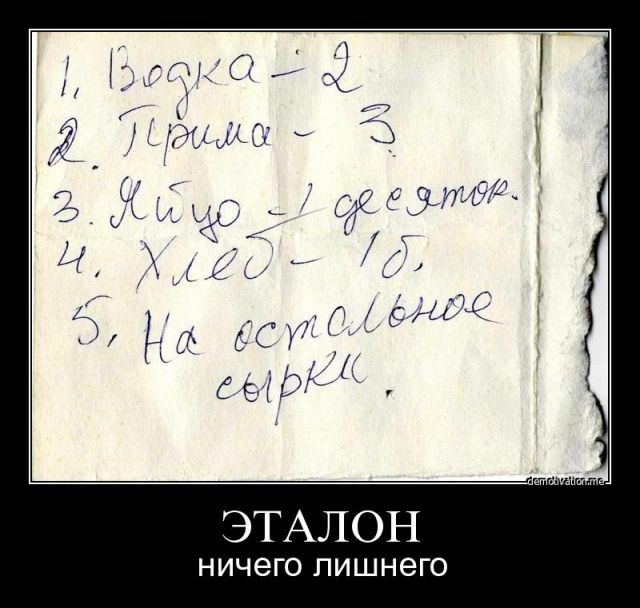 1. Водка - 2
2. Прима - 3
3. Яйцо - 1 десяток.
4. Хлеб - 1 б.
5. На остальное
сырки.
demotivation.me
ЭТАЛОН
ничего лишнего